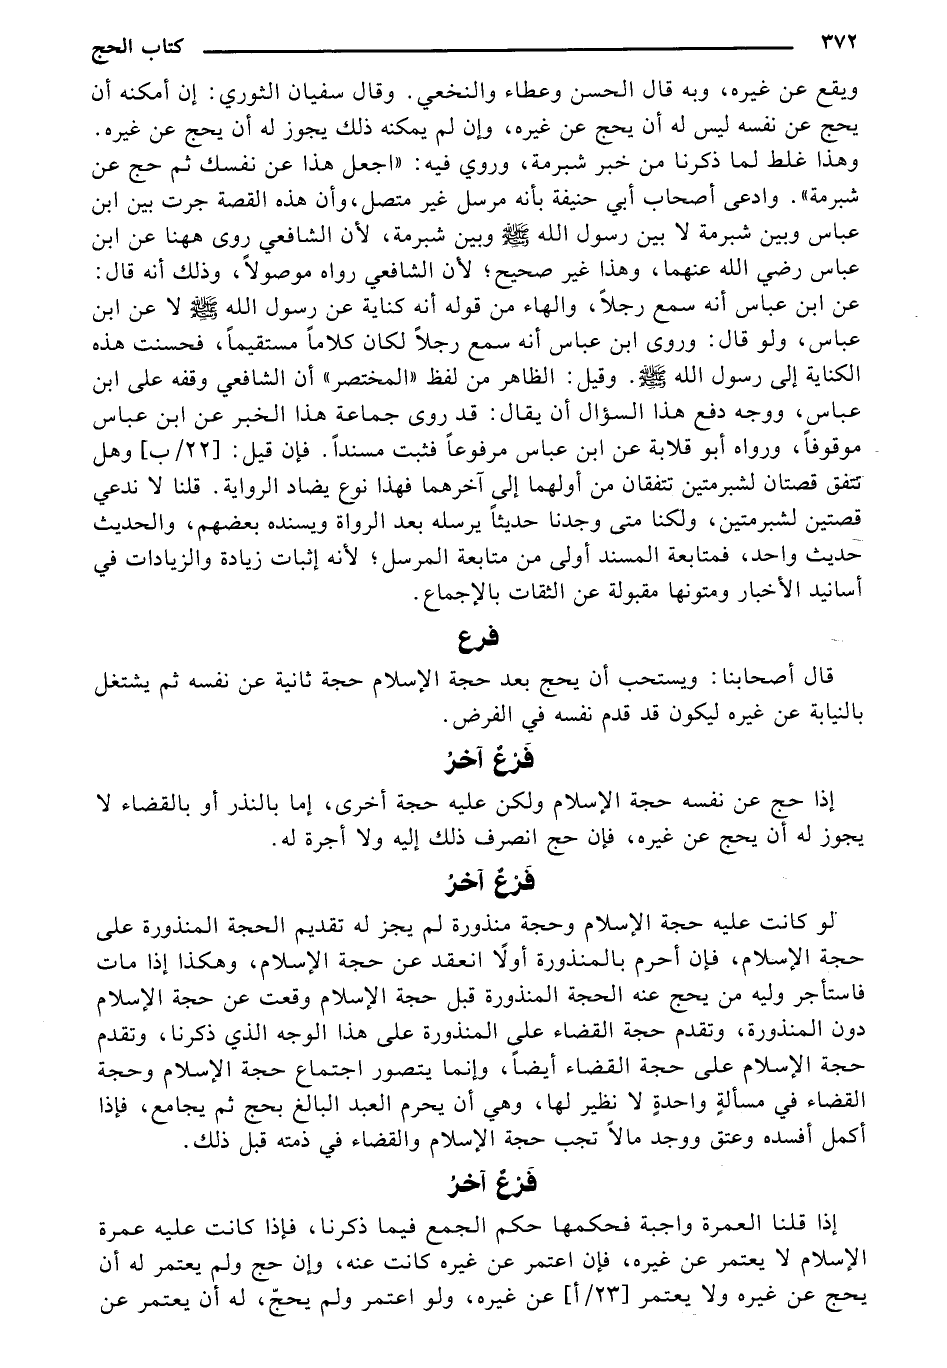 ٣٧٢ كتاب الحج
ويقع عن غيره، وبه قال الحسن وعطاء والنخعي. وقال سفيان الثوري: إن أمكنه أن
يحج عن نفسه ليس له أن يحج عن غيره، وإن لم يمكنه ذلك يجوز له أن يحج عن غيره.
وهذا غلط لما ذكرنا من خبر شبرمة، وروي فيه: «اجعل هذا عن نفسك ثم حج عن
شبرمة». وادعى أصحاب أبي حنيفة بأنه مرسل غير متصل،وأن هذه القصة جرت بين ابن
عباس وبين شبرمة لا بين رسول الله ﷺ وبين شبرمة، لأن الشافعي روى ههنا عن ابن
عباس رضي الله عنهما، وهذا غير صحيح؛ لأن الشافعي رواه موصولاً، وذلك أنه قال:
عن ابن عباس أنه سمع رجلاً، والهاء من قوله أنه كناية عن رسول الله ﷺ لا عن ابن
عباس، ولو قال: وروى ابن عباس أنه سمع رجلاً لكان كلاماً مستقيماً، فحسنت هذه
الكناية إلى رسول الله ﷺ. وقيل: الظاهر من لفظ «المختصر» أن الشافعي وقفه على ابن
عباس، ووجه دفع هذا السؤال أن يقال: قد روى جماعة هذا الخبر عن ابن عباس
موقوفاً، ورواه أبو قلابة عن ابن عباس مرفوعاً فثبت مسنداً. فإن قيل: [٢٢/ ب] وهل
تتفق قصتان لشبرمتين تتفقان من أولهما إلى آخرهما فهذا نوع يضاد الرواية. قلنا لا ندعي
قصتين لشبرمتين، ولكنا متى وجدنا حديثاً يرسله بعد الرواة ويسنده بعضهم، والحديث
حديث واحد، فمتابعة المسند أولى من متابعة المرسل؛ لأنه إثبات زيادة والزيادات في
أسانيد الأخبار ومتونها مقبولة عن الثقات بالإجماع.
فرع
قال أصحابنا: ويستحب أن يحج بعد حجة الإسلام حجة ثانية عن نفسه ثم يشتغل
بالنيابة عن غيره ليكون قد قدم نفسه في الفرض.
فَرْعٌ آخرُ
إذا حج عن نفسه حجة الإسلام ولكن عليه حجة أخرى، إما بالنذر أو بالقضاء لا
يجوز له أن يحج عن غيره، فإن حج انصرف ذلك إليه ولا أجرة له.
فَرْعٌ آخرُ
لو كانت عليه حجة الإسلام وحجة منذورة لم يجز له تقديم الحجة المنذورة على
حجة الإسلام، فإن أحرم بالمنذورة أولًا انعقد عن حجة الإسلام، وهكذا إذا مات
فاستأجر وليه من يحج عنه الحجة المنذورة قبل حجة الإسلام وقعت عن حجة الإسلام
دون المنذورة، وتقدم حجة القضاء على المنذورة على هذا الوجه الذي ذكرنا، وتقدم
حجة الإسلام على حجة القضاء أيضاً، وإنما يتصور اجتماع حجة الإسلام وحجة
القضاء في مسألةٍ واحدةٍ لا نظير لها، وهي أن يحرم العبد البالغ بحج ثم يجامع، فإذا
أكمل أفسده وعتق ووجد مالاً تجب حجة الإسلام والقضاء في ذمته قبل ذلك.
فَرْعٌ آخرُ
إذا قلنا العمرة واجبة فحكمها حكم الجمع فيما ذكرنا، فإذا كانت عليه عمرة
الإسلام لا يعتمر عن غيره، فإن اعتمر عن غيره كانت عنه، وإن حج ولم يعتمر له أن
يحج عن غيره ولا يعتمر [٢٣/ أ] عن غيره، ولو اعتمر ولم يحجّ، له أن يعتمر عن